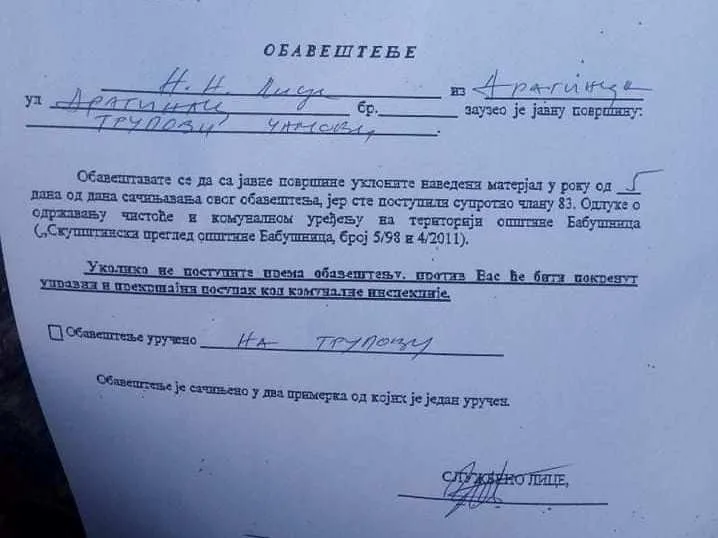 ОБАВЕШТЕЊЕ
Н.Н. Лице из Драгинца
ул ДРАГИНАЦ бр. заузео је јавну површину:
ТРУПОВИ ЧАМОВИ
Обавештавате се да са јавне површине уклоните наведени матерјал у року од 5
дана од дана сачињавања овог обавештења, јер сте поступили супротно члану 83. Одлуке о
одржавању чистоће и комуналном уређењу на територији општине Бабушница
(„Скупштински преглед општине Бабушница, број 5/98 и 4/2011).
Уколико не поступите према обавештењу, против Вас ће бити покренут
управни и прекршајни поступак код комуналне инспекције.
Обавештење уручено НА ТРУПОВИ
Обавештење је сачињено у два примерка од којих је један уручен.
СЛУЖБЕНО ЛИЦЕ,